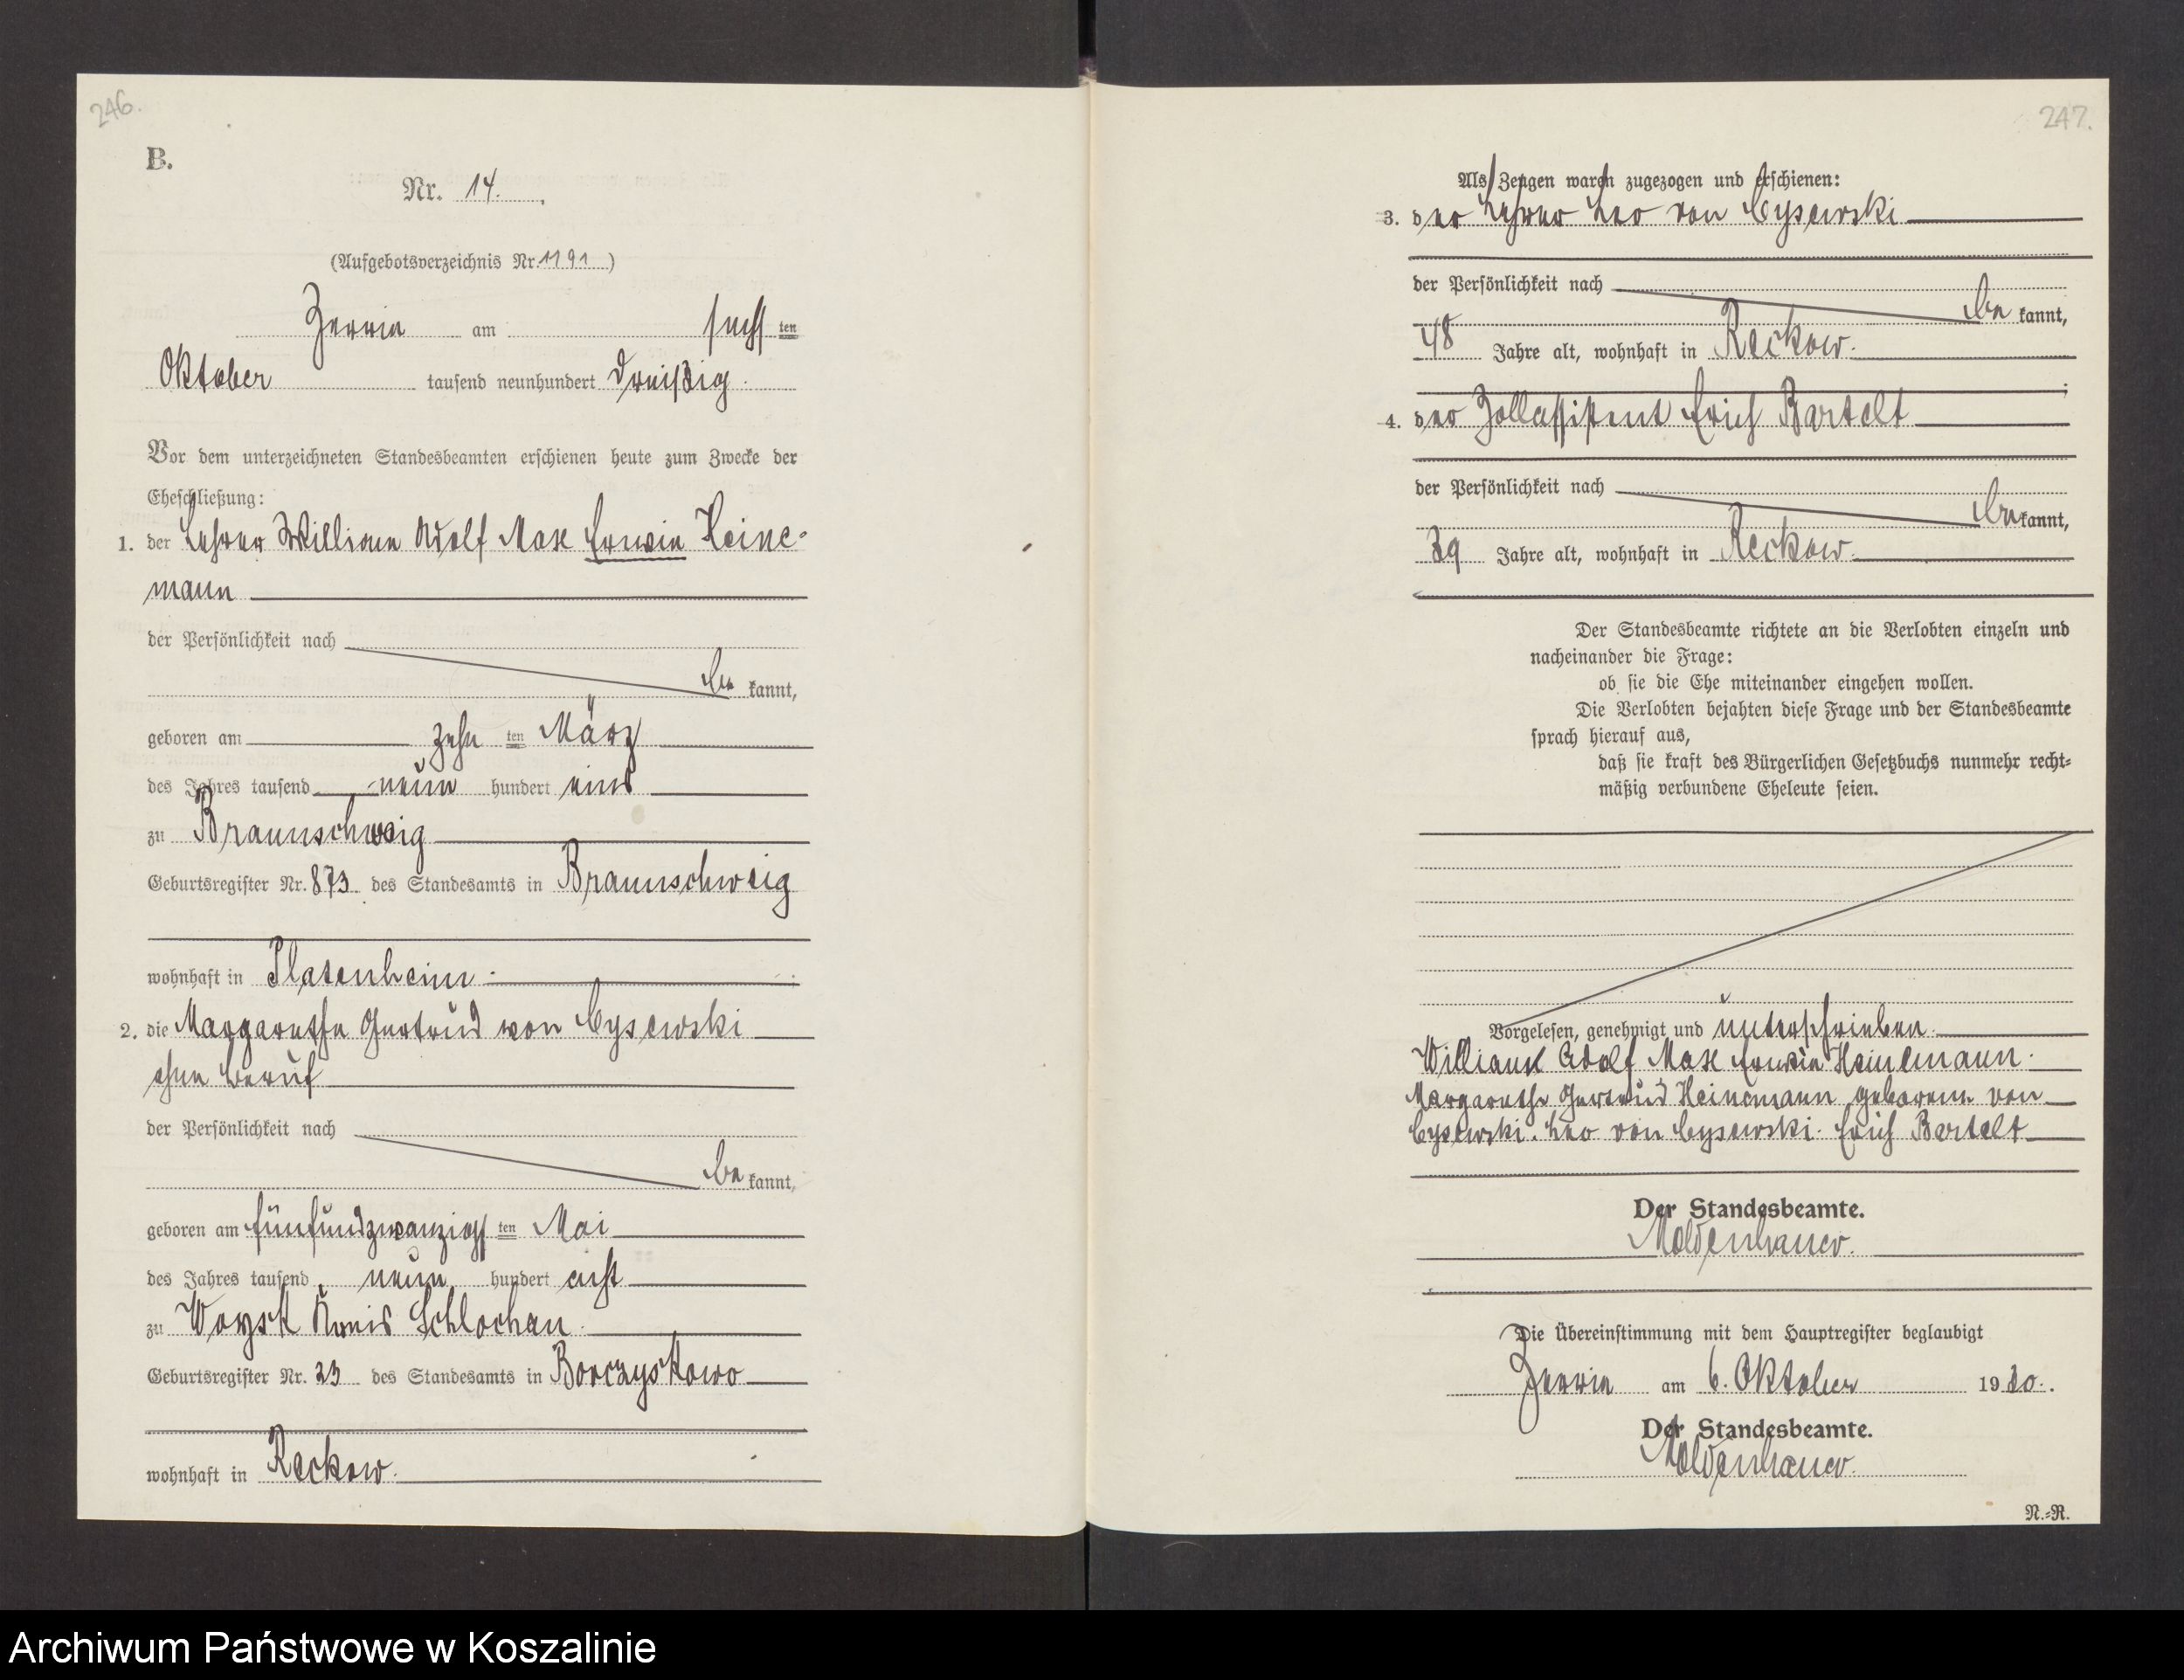 246.
B.
Nr. 14.
(Aufgebotsverzeichnis Nr. 1191)
Zerrin am sechsten
Oktober tausend neunhundert dreißig.
Vor dem unterzeichneten Standesbeamten erschienen heute zum Zwecke der
Eheschließung:
1. der Lehrer William Adolf Max Erwin Heine-
mann
der Persönlichkeit nach
bekannt,
geboren am zehnten März
des Jahres tausend neunhundert eins
zu Braunschweig
Geburtsregister Nr. 873 des Standesamts in Braunschweig
wohnhaft in Platenheim.
2. die Margarethe Gertrud von Cysewski
ohne Beruf
der Persönlichkeit nach
bekannt,
geboren am fünfundzwanzigsten Mai
des Jahres tausend neunhundert acht
zu Woysk Kreis Schlochau.
Geburtsregister Nr. 23 des Standesamts in Borczyskowo
wohnhaft in Reckow.
247.
Als Zeugen waren zugezogen und erschienen:
3. der Lehrer Leo von Cysewski
der Persönlichkeit nach
bekannt,
48 Jahre alt, wohnhaft in Reckow.
4. der Zollassistent Erich Bartelt
der Persönlichkeit nach
bekannt,
39 Jahre alt, wohnhaft in Reckow.
Der Standesbeamte richtete an die Verlobten einzeln und
nacheinander die Frage:
ob sie die Ehe miteinander eingehen wollen.
Die Verlobten bejahten diese Frage und der Standesbeamte
sprach hierauf aus,
daß sie kraft des Bürgerlichen Gesetzbuchs nunmehr recht-
mäßig verbundene Eheleute seien.
Vorgelesen, genehmigt und unterschrieben.
William Adolf Max Erwin Heinemann.
Margarethe Gertrud Heinemann geborene von
Cysewski. Leo von Cysewski. Erich Bartelt
Der Standesbeamte.
Moldenhauer.
Die Übereinstimmung mit dem Hauptregister beglaubigt
Zerrin am 6. Oktober 1930.
Der Standesbeamte.
Moldenhauer.
N.-R.
Archiwum Państwowe w Koszalinie